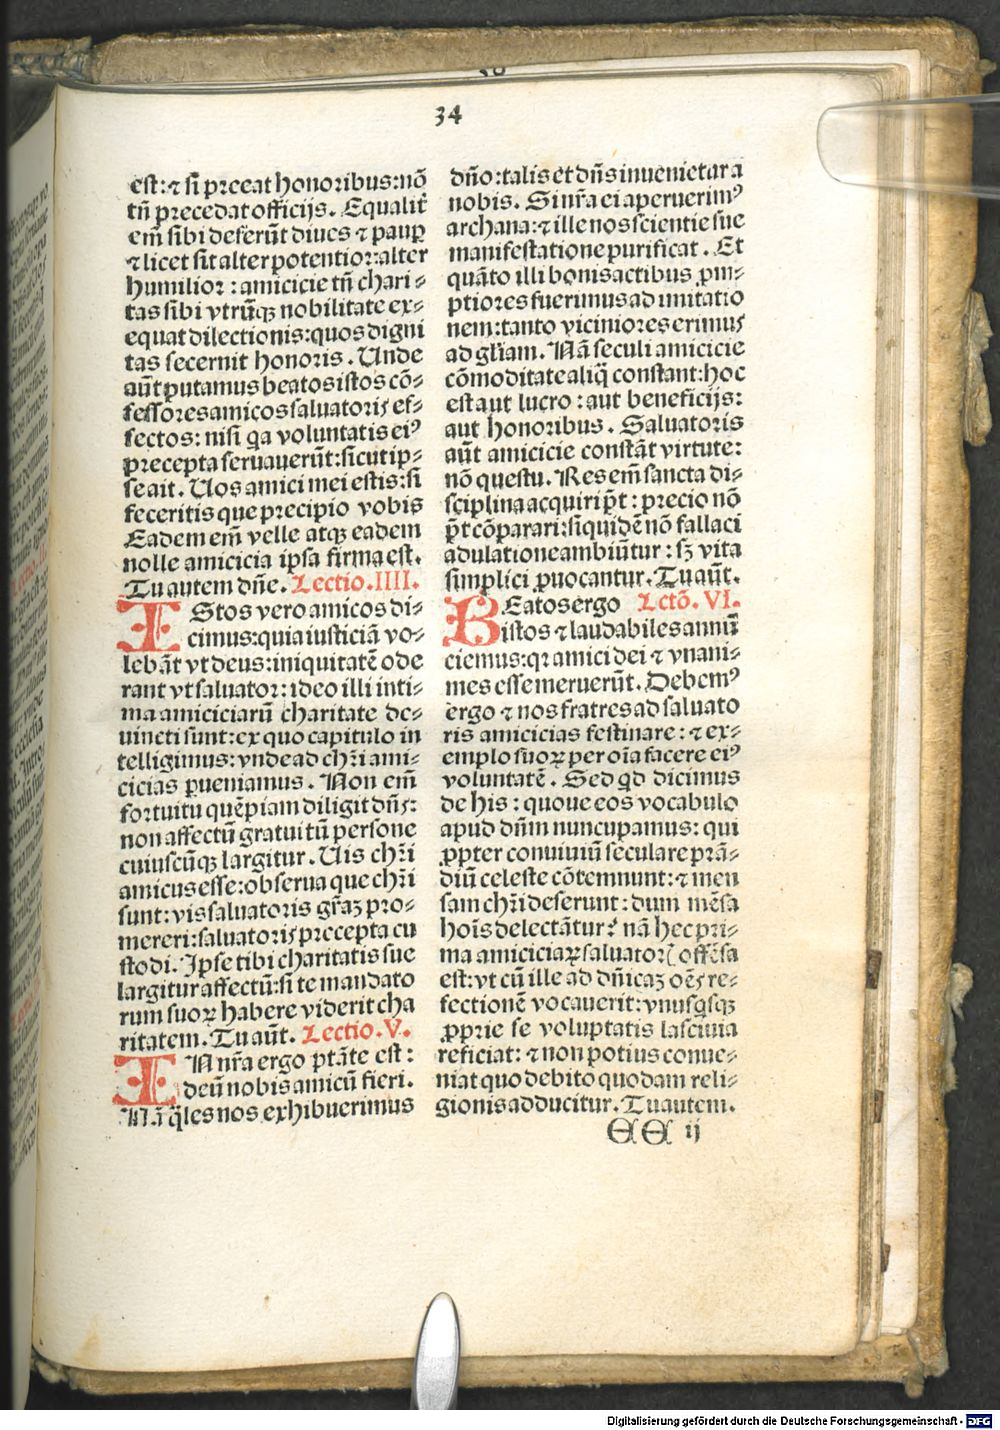 34
est: ⁊ si p̄ceat honoribus: nō
tn̄ precedat officijs. Equalit̄
em̄ sibi deferūt diues ⁊ paup̱
⁊ licet sit alter potentior: alter
humilior: amicicie tn̄ chari⸗
tas sibi vtrūqꝫ nobilitate ex⸗
equat dilectionis: quos digni
tas secernit honoris. Unde
aūt putamus beatos istos cō⸗
fessores amicos saluatoris ef⸗
fectos: nisi qꝛ voluntatis eiꝰ
precepta seruauerūt: sicut ip⸗
se ait. Uos amici mei estis: si
feceritis que precipio vobis
Eadem em̄ velle atqꝫ eadem
nolle amicicia ipsa firma est.
Tu autem dn̄e. Lectio. IIII.
IStos vero amicos di⸗
cimus: quia iusticiā vo⸗
lebāt vt deus: iniquitatē ode
rant vt saluator: ideo illi inti⸗
ma amiciciarū charitate de⸗
uincti sunt: ex quo capitulo in
telligimus: vnde ad chr̄i ami⸗
cicias ꝑueniamus. Non em̄
fortuitu quēpiam diligit dn̄s:
non affectū gratuitū persone
cuiuscūqꝫ largitur. Uis chr̄i
amicus esse: obserua que chr̄i
sunt: vis saluatoris gr̄aꝫ pro⸗
mereri: saluatoris precepta cu
stodi. Ipse tibi charitatis sue
largitur affectū: si te mandato
rum suoꝝ habere viderit cha
ritatem. Tu aūt. Lectio. V.
IN nr̄a ergo ptāte est:
deū nobis amicū fieri.
Nā q̄les nos exhibuerimus
dn̄o: talis et dn̄s inuenietur a
nobis. Si nr̄a ei aperuerimꝰ
archana: ⁊ ille nos scientie sue
manifestatione purificat. Et
quāto illi bonis actibus ꝓm⸗
ptiores fuerimus ad imitatio
nem: tanto viciniores erimus
ad gl̄iam. Nā seculi amicicie
cōmoditate aliq̄ constant: hoc
est aut lucro: aut beneficijs:
aut honoribus. Saluatoris
aūt amicicie constāt virtute:
nō questu. Res em̄ sancta di⸗
sciplina acquiri pt̄: precio nō
pt̄ cōparari: siquidē nō fallaci
adulatione ambiūtur: sꝫ vita
simplici ꝓuocantur. Tu aūt.
BEatos ergo Lctō. VI.
istos ⁊ laudabiles annū
ciemus: qꝛ amici dei ⁊ vnani⸗
mes esse meruerūt. Debemꝰ
ergo ⁊ nos fratres ad saluato
ris amicicias festinare: ⁊ ex⸗
emplo suoꝝ per oīa facere eiꝰ
voluntatē. Sed qd̄ dicimus
de his: quo ue eos vocabulo
apud dn̄m nuncupamus: qui
ꝓpter conuiuiū seculare prā⸗
diū celeste cōtemnunt: ⁊ men
sam chr̄i deserunt: dum mēsa
hoīs delectātur? nā hec pri⸗
ma amiciciaꝝ saluatorꝭ offēsa
est: vt cū ille ad dn̄icaꝫ oēs re⸗
fectionē vocauerit: vnusqsqꝫ
ꝓprie se voluptatis lasciuia
reficiat: ⁊ non potius conue⸗
niat quo debito quodam reli⸗
gionis adducitur. Tu autem.
EE ij
Digitalisierung gefördert durch die Deutsche Forschungsgemeinschaft - DFG